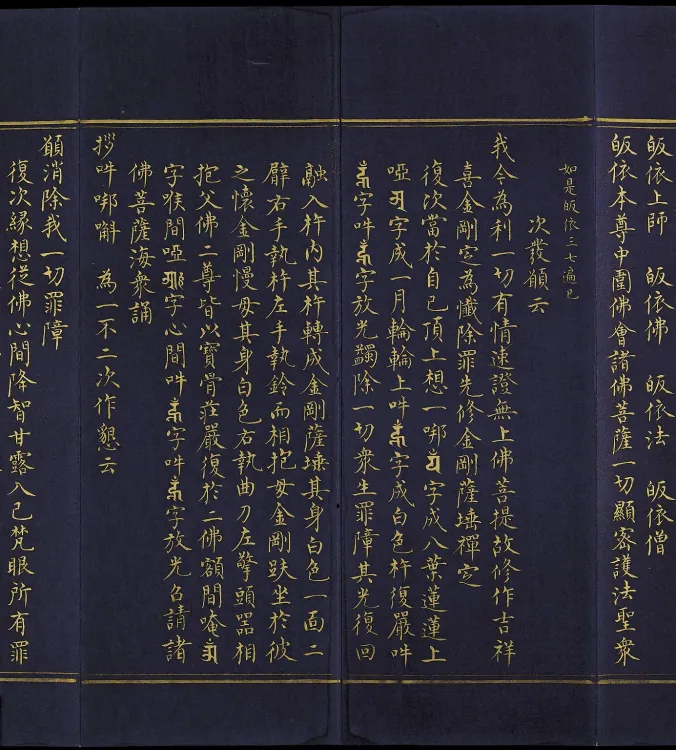 皈依上師　皈依佛　皈依法　皈依僧
皈依本尊中圍佛會諸佛菩薩一切顯密護法聖衆
如是皈依三七遍已
次發願云
我今為利一切有情速證無上佛菩提故修作吉祥
喜金剛定為懺除罪先修金剛薩埵禪定
復次當於自己頂上想一唧字成八葉蓮蓮上
啞字成一月輪輪上吽字成白色杵復嚴吽
字吽字放光蠲除一切衆生罪障其光復回
融入杵内其杵轉成金剛薩埵其身白色一面二
臂右手執杵左手執鈴而相抱母金剛趺坐於彼
之懷金剛慢母其身白色右執曲刀左擎頭器相
抱父佛二尊皆以寶骨莊嚴復於二佛額間唵
字喉間啞字心間吽字吽字放光召請諸
佛菩薩海衆誦
拶吽唧斛　為一不二次作懇云
願消除我一切罪障
復次緣想從佛心間降智甘露入己梵眼所有罪